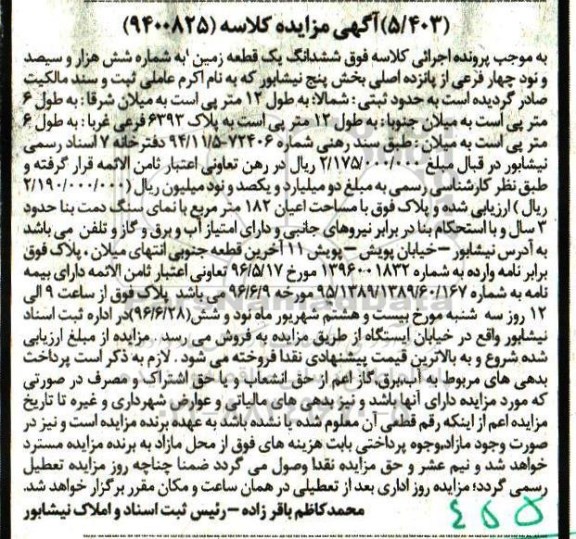 (۵/۴۰۳)آگهی مزایده کلاسه (۹۴۰۰۸۲۵)
به موجب پرونده اجرائی کلاسه فوق ششدانگ یک قطعه زمین 'به شماره شش هزار و سیصد
و نود چهار فرعی از پانزده اصلی بخش پنج نیشابور که به نام اکرم عاملی ثبت و سند مالکیت
صادر گردیده است به حدود ثبتی : شمالا: به طول ۱۲ متر پی است به میلان شرقا : به طول ۶
متر پی است به میلان جنوبا : به طول ۱۲ متر پی است به پلاک ۶۳۹۳ فرعی غربا : به طول ۶
متر پی است به میلان : طبق سند رهنی شماره ۷۲۴۰۶-۹۴/۱۱/۵ دفترخانه ۷ اسناد رسمی
نیشابور در قبال مبلغ ۲/۱۷۵/۰۰۰/۰۰۰ ریال در رهن تعاونی اعتبار ثامن الائمه قرار گرفته و
طبق نظر کارشناسی رسمی به مبلغ دو میلیارد و یکصد و نود میلیون ریال (۲/۱۹۰/۰۰۰/۰۰۰
ریال) ارزیابی شده و پلاک فوق با مساحت اعیان ۱۸۲ متر مربع با نمای سنگ دمت بنا حدود
۳ سال و با استحکام بنا در برابر نیروهای جانبی و دارای امتیاز آب و برق و گاز و تلفن می باشد
به آدرس نیشابور –خیابان پویش – پویش ۱۱ آخرین قطعه جنوبی انتهای میلان . پلاک فوق
برابر نامه وارده به شماره ۱۳۹۶۰۰۱۸۳۲ مورخ ۹۶/۵/۱۷ تعاونی اعتبار ثامن الائمه دارای بیمه
نامه به شماره ۹۵/۱۳۸۹/۱۳۸۹/۶۰/۱۶۷ مورخه ۹۶/۶/۹ می باشد پلاک فوق از ساعت ۹ الی
۱۲ روز سه شنبه مورخ بیست و هشتم شهریور ماه نود و شش(۹۶/۶/۲۸)در اداره ثبت اسناد
نیشابور واقع در خیابان ایستگاه از طریق مزایده به فروش می رسد . مزایده از مبلغ ارزیابی
شده شروع و به بالاترین قیمت پیشنهادی نقدا فروخته می شود . لازم به ذکر است پرداخت
بدهی های مربوط به آب،برق،گاز اعم از حق انشعاب و یا حق اشتراک و مصرف در صورتی
که مورد مزایده دارای آنها باشد و نیز بدهی های مالیاتی و عوارض شهرداری و غیره تا تاریخ
مزایده اعم از اینکه رقم قطعی آن معلوم شده یا نشده باشد به عهده برنده مزایده است و نیز در
صورت وجود مازاد،وجوه پرداختی بابت هزینه های فوق از محل مازاد به برنده مزایده مسترد
خواهد شد و نیم عشر و حق مزایده نقدا وصول می گردد ضمنا چنانچه روز مزایده تعطیل
رسمی گردد؛ مزایده روز اداری بعد از تعطیلی در همان ساعت و مکان مقرر برگزار خواهد شد.
محمدکاظم باقر زاده – رئیس ثبت اسناد و املاک نیشابور